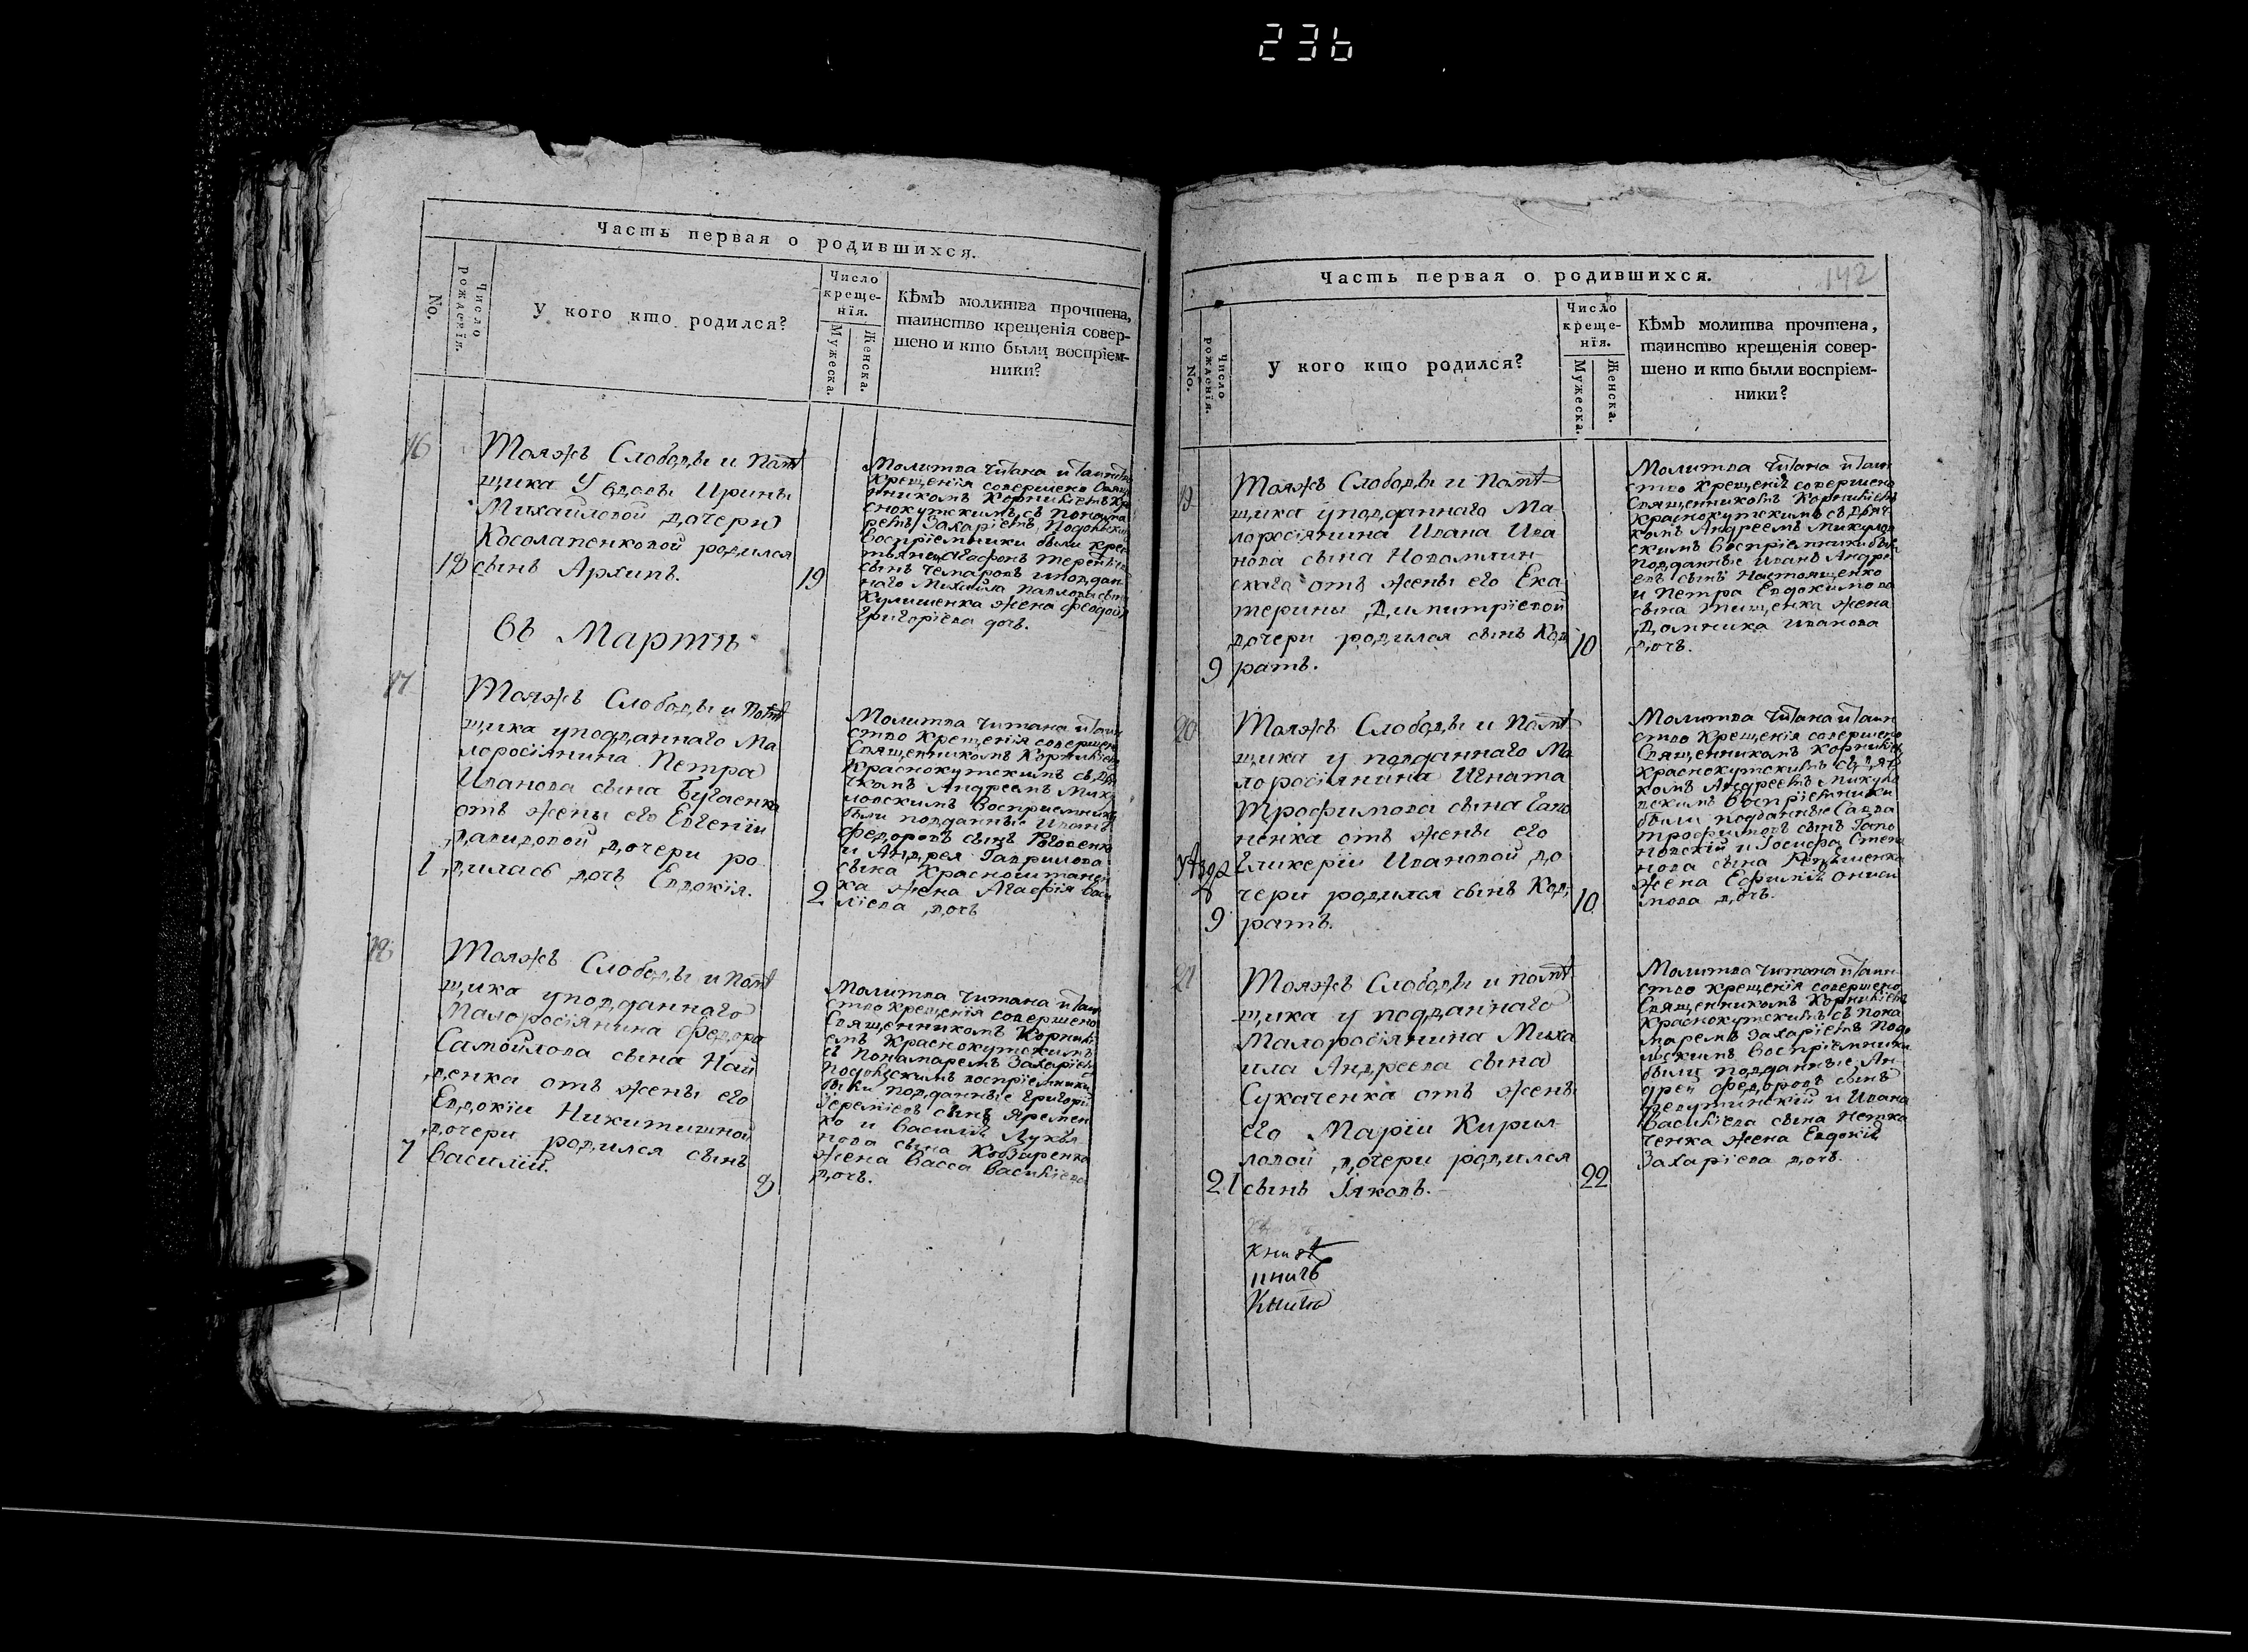 236
Часть первая о родившихся.
No.
Число рожденія.
У кого кто родился?
Число
креще-
нїя.
Мужеска.
Женска.
Кѣмъ молитва прочтена,
таинство крещенія совер-
шено и кто были воспріем-
ники?
16
Тояжъ Слободы и помѣ
щика У вдовы Ирины
Михайловой дочери
Косолапенковой родился
18 сынъ Архипъ. 19
Молитва читана и таинство
крещенія совершено Свяще
нникомъ Корниліемъ Кра
снокутскимъ съ понома
ремъ Захаріемъ Подольским
воспріемники были крес
тьяне Агафонъ Терентіевъ
сынъ Чемаровъ и поддан
наго Михайла Павлова сына
Кулишенка жена Феодосія
Григоріева дочь.
Въ Мартѣ
17
Тояжъ Слободы и помѣ
щика у подданнаго Ма
лоросіянина Петра
Иванова сына Бугаенка
отъ жены его Евгеніи
Давидовой дочери ро
1 дилась дочь Евдокія. 2
Молитва читана и таин
ство крещенія совершено
Священникомъ Корниліемъ
Краснокутскимъ съ дья
чкомъ Андреемъ Мику
ловскимъ воспріемники
были подданные Иванъ
Федоровъ сынъ Роговенко
и Андрея Гаврилова
сына Красноштанен
ка жена Агафія Васи
ліева дочь
18
Тояжъ Слободы и помѣ
щика у подданнаго
Малоросіянина Федора
Самойлова сына Най
денка отъ жены его
Евдокіи Никитишной
дочери родился сынъ
7 Василій. 8
Молитва читана и таин
ство крещенія совершено
Священникомъ Корнилі
емъ Краснокутскимъ
съ Понамаремъ Захаріемъ
Подольскимъ воспріемники
были подданные Григорій
Іереміевъ сынъ Яремен
ко и Василія Лукья
нова сына Кобзаренка
жена Васса Василіева
дочь.
Часть первая о родившихся.
142
No.
Число рожденія.
У кого кто родился?
Число
креще-
нїя.
Мужеска.
Женска.
Кѣмъ молитва прочтена,
таинство крещенія совер-
шено и кто были воспріем-
ники?
19
Тояжъ Слободы и помѣ
щика у подданнаго Ма
лоросіянина Ивана Ива
нова сына Новомлин
скаго отъ жены его Ека
терины Димитріевой
дочери родился сынъ Код 10
9 ратъ.
Молитва читана и таин
ство крещенія совершено
Священникомъ Корниліемъ
Краснокутскимъ съ дьяч
комъ Андреемъ Микулов
скимъ воспріемники были
подданные Иванъ Андре
евъ сынъ Настоященко
и Петра Евдокимова
сына Тищенка жена
Домника Иванова
дочь.
20
Тояжъ Слободы и помѣ
щика у подданнаго Ма
лоросіянина Игната
Трофимова сына Гапо
ненка отъ жены его
Гликеріи Ивановой до
чери родился сынъ Код 10
9 ратъ.
Молитва читана и таин
ство крещенія совершено
Священникомъ Корниліемъ
Краснокутскимъ съ дьяч
комъ Андреемъ Микуло
вскимъ воспріемники
были подданные Савва
Трофимовъ сынъ Гапо
новскій и Іосифа Степа
нова сына
жена Ефимія Ониси
мова дочь.
21
Тояжъ Слободы и помѣ
щика у подданнаго
Малоросіянина Миха
ила Андреева сына
Сукаченка отъ жены
его Маріи Кирил
ловой дочери родился
21 сынъ Іяковъ. 22
Молитва читана и таин
ство крещенія совершено
Священникомъ Корниліемъ
Краснокутскимъ съ пона
маремъ Захаріемъ Подо
льскимъ воспріемники
были подданные Ан
дрей Федоровъ сынъ
и Ивана
Василіева сына Нетка
ченка жена Евдокія
Захаріева дочь.
книгѣ
Книга